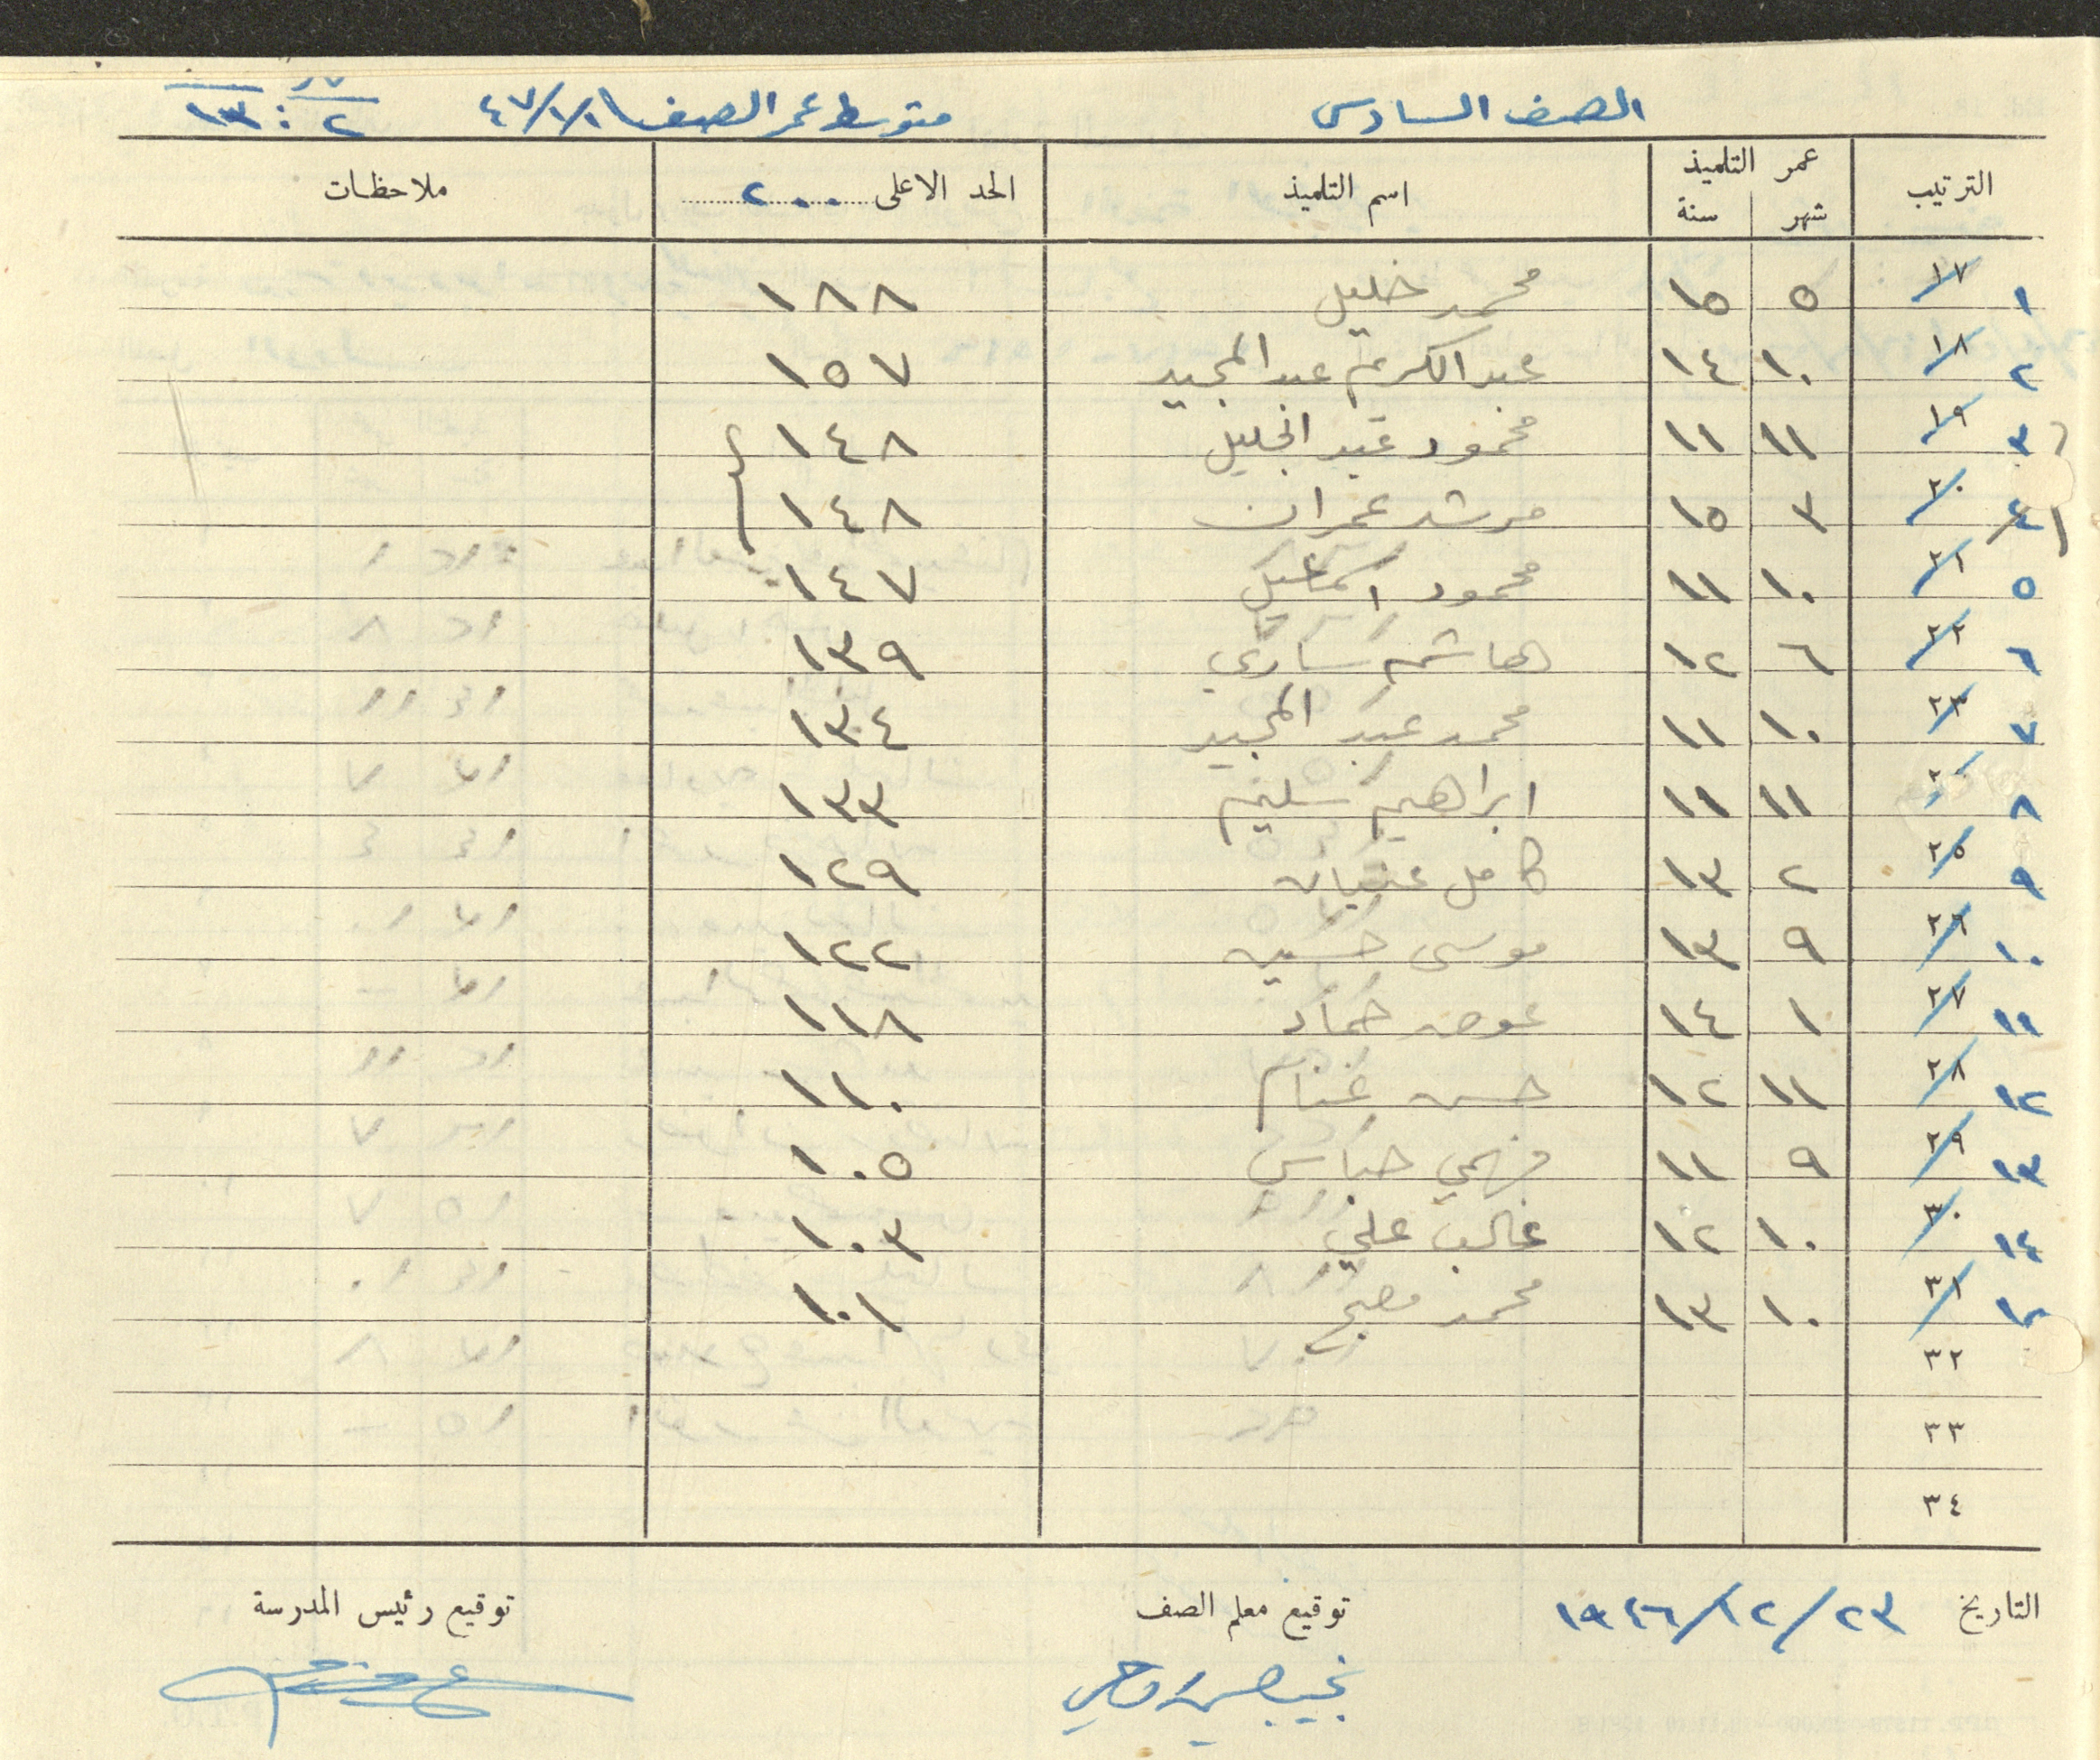 الصف السادس متوسط عمر الصف ١/١/٤٧ ٢ : ١٣
الترتيب عمر التلميذ اسم التلميذ الحد الاعلى ٢٠٠ ملاحظات
شهر سنة
١ ١٧ ٥ ١٥ محمد خليل ١٨٨
٢ ١٨ ١٠ ١٤ عبد الكريم عبد المجيد ١٥٧
٣ ١٩ ١١ ١١ محمود عبد الجليل ١٤٨
٤ ٢٠ ٣ ١٥ مرشد عمران ١٤٨
٥ ٢١ ١٠ ١١ محمود اسماعيل ١٤٧
٦ ٢٢ ٦ ١٢ هاشم ساري ١٣٩
٧ ٢٣ ١٠ ١١ محمد عبد المجيد ١٣٤
٨ ١١ ١١ ابراهيم سليم ١٣٣
٩ ٢٥ ٢ ١٣ كامل ١٢٩
١٠ ٢٦ ٩ ١٣ موسى حسين ١٢٢
١١ ٢٧ ١ ١٤ عوض حماد ١١٨
١٢ ٢٨ ١١ ١٢ حسن غنام ١١٠
١٣ ٢٩ ٩ ١١ فهمي ١٠٥
١٤ ٣٠ ١٠ ١٢ غالب علي ١٠٣
١٥ ٣١ ١٠ ١٣ محمد مصبح ١٠١
٣٢
٣٣
٣٤
التاريخ ٢٣/١٢/١٩٤٦ توقيع معلم الصف توقيع رئيس المدرسة